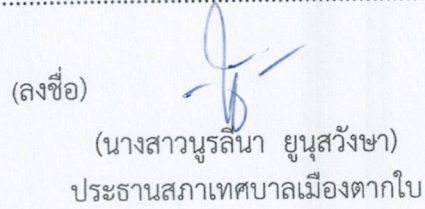 (ลงชื่อ)
(นางสาวนูรลีนา ยูนุสวังษา)
ประธานสภาเทศบาลเมืองตากใบ